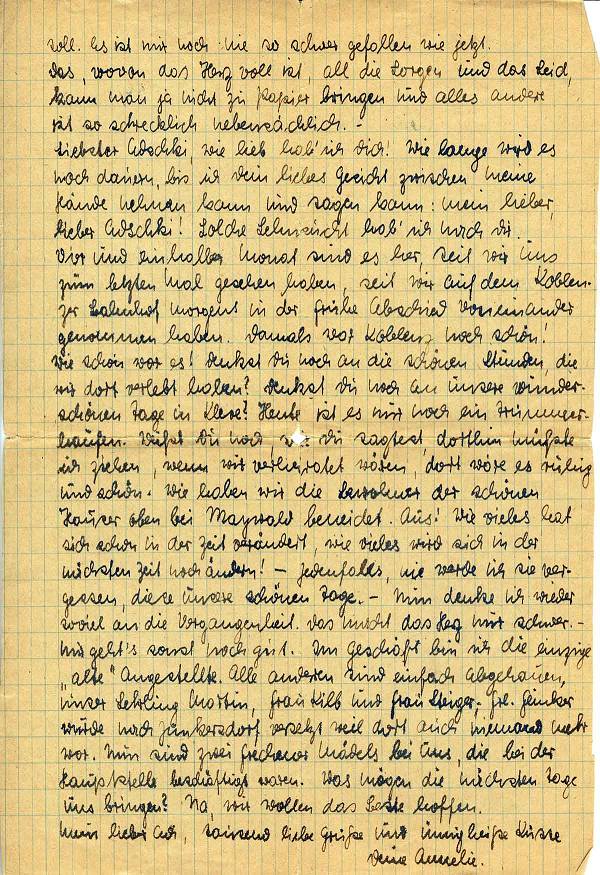 soll. Es ist mir noch nie so schwer gefallen wie jetzt.
Das, wovon das Herz voll ist, all die Sorgen und das Leid,
kann man ja nicht zu Papier bringen und alles andere
ist so schrecklich nebensächlich. -
Liebster Adschki, wie lieb hab' ich dich! Wie lange wird es
noch dauern, bis ich dein liebes Gesicht zwischen meine
Hände nehmen kann und sagen kann: mein lieber,
lieber Adschki! Solche Sehnsucht hab' ich nach dir.
Vier und einhalber Monat sind es her, seit wir uns
zum letzten Mal gesehen haben, seit wir auf dem Koblen-
zer Bahnhof morgens in der frühe Abschied voneinander
genommen haben. Damals war Koblenz noch schön!
Wie schön war es! Denkst Du noch an die schönen Stunden, die
wir dort verlebt haben? Denkst Du noch an unsere wunder-
schönen Tage in Kleve? Heute ist es nur noch ein Trümmer-
haufen. Weißt Du noch, wie Du sagtest, dorthin müßte
ich ziehen, wenn wir verheiratet wären, dort wäre es ruhig
und schön. Wie haben wir die Bewohner der schönen
Häuser oben bei Maywald beneidet. Aus! Wie vieles hat
sich schon in der Zeit verändert, wie vieles wird sich in der
nächsten Zeit noch ändern! - Jedenfalls, nie werde ich sie ver-
gessen, diese unsere schönen Tage. - Nun denke ich wieder
soviel an die Vergangenheit. Das macht das Herz nur schwer. -
Mir geht's sonst noch gut. Im Geschäft bin ich die einzige
"alte" Angestellte. Alle anderen sind einfach abgehauen,
unser Lehrling Martin, Frau Kilb und Frau Steiger, Frl.
wurde nach Junkersdorf versetzt, weil dort auch niemand mehr
war. Nun sind zwei Frechener Mädels bei uns, die bei der
Hauptstelle beschäftigt waren. Was mögen die nächsten Tage
uns bringen? Na, wir wollen das beste hoffen.
Mein lieber Adi, tausend liebe Grüße und innig heiße Küsse
Deine Annelie.